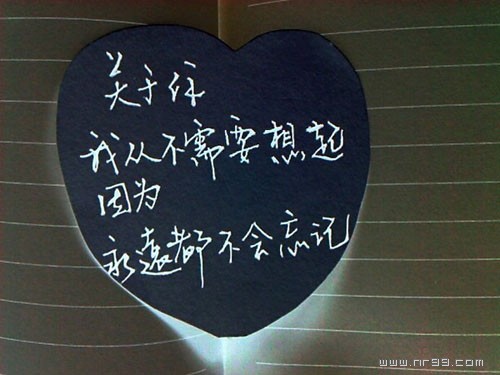 关于你
我从不需要想起
因为
永遠都不会忘记
www.nr99.com